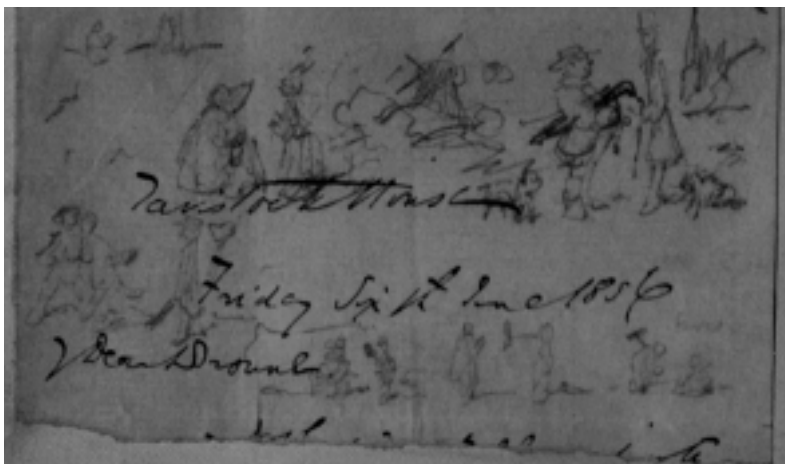 Tavistock House
Friday Sixth June 1856
My Dear Browne